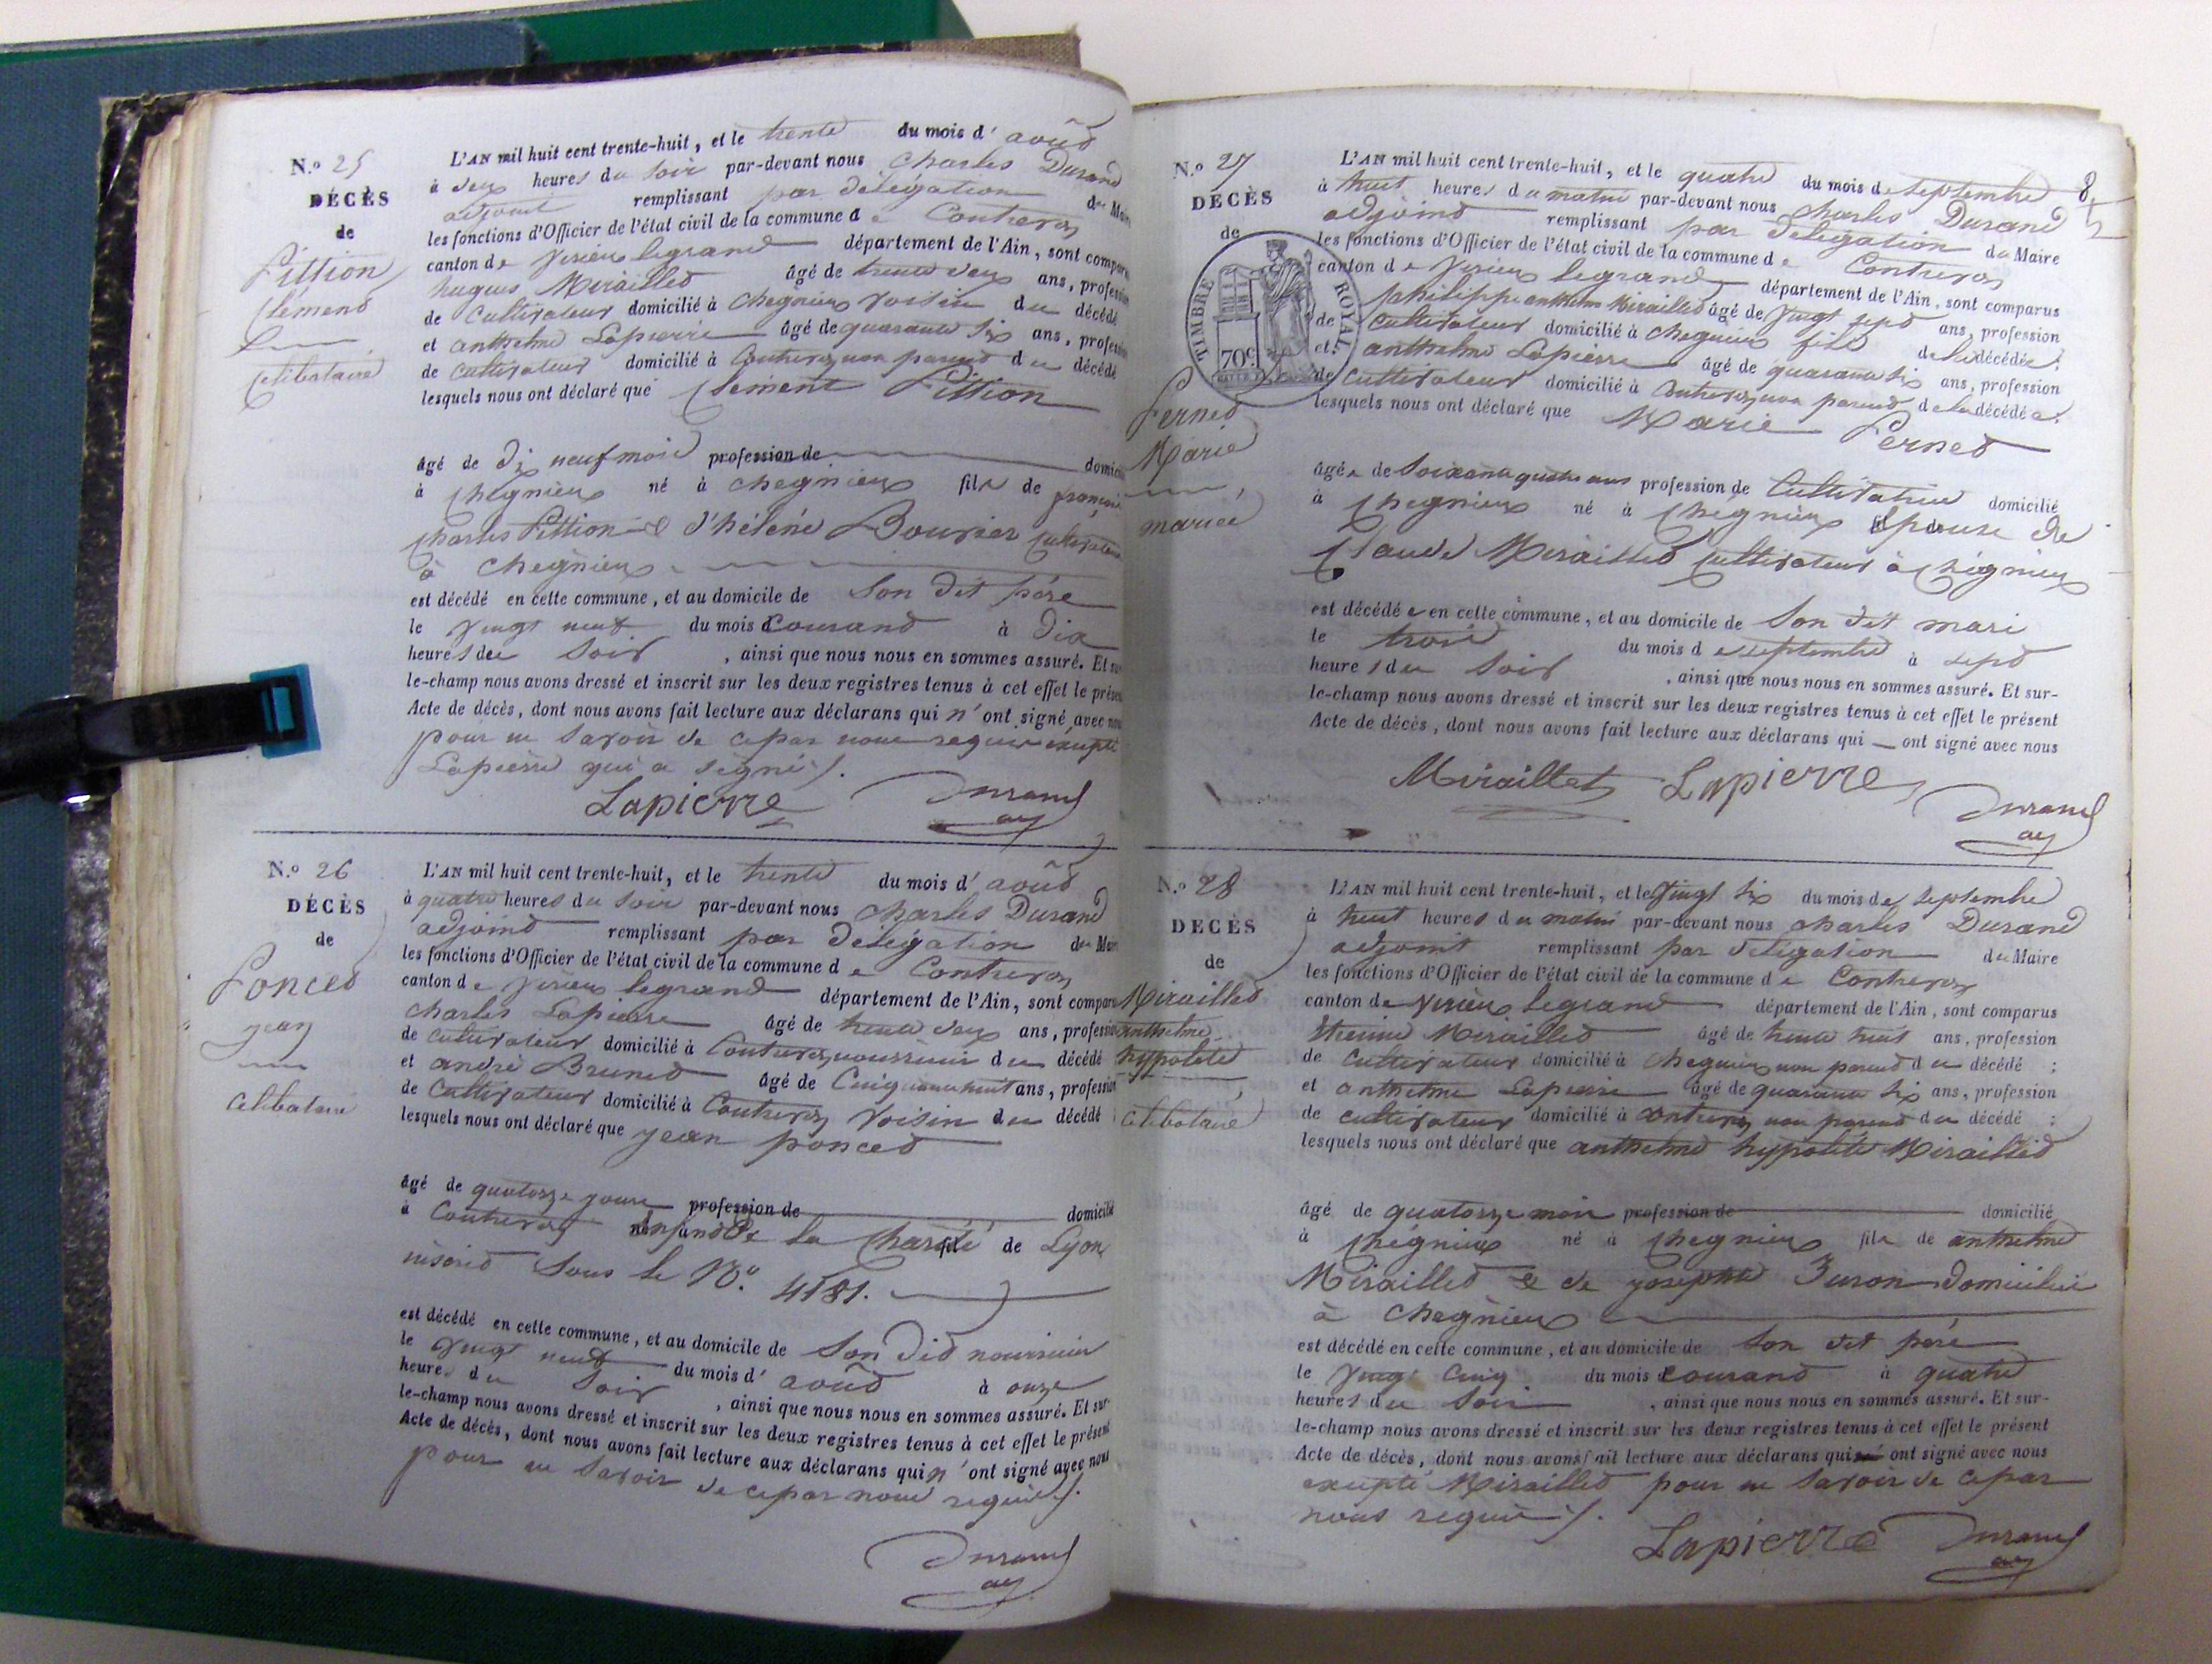 N.º 25
DÉCÈS
de
Pittion
Clément
celibataire
L'AN mil huit cent trente-huit, et le trente du mois d'août
à deux heures du soir par-devant nous Charles Durand
adjoint remplissant par délégation du Maire
les fonctions d'Officier de l'état civil de la commune de Contrevoz
canton de Virieu legrand département de l'Ain, sont comparus
hugues Miraillet âgé de trente deux ans, profession
de cultivateur domicilié à Chegnieu voisin du décédé
et anthelme Lapierre âgé de quarante six ans, profession
de cultivateur domicilié à Contrevoz non parent du décédé
lesquels nous ont déclaré que Clément Pittion
âgé de dix neuf mois profession de domicilié
à Chegnieux né à chegnieux fils de françois
Charles Pittion et d'héléne Bouvier cultivateurs
à chegnieux
est décédé en cette commune, et au domicile de son dit pére
le vingt neuf du mois courant à dix
heures du soir, ainsi que nous nous en sommes assuré. Et sur-
le-champ nous avons dressé et inscrit sur les deux registres tenus à cet effet le présent
Acte de décès, dont nous avons fait lecture aux déclarans qui n'ont signé avec nous
pour ne savoir de ce par nous requis éxupté
Lapierre qui a signé ./.
Lapierre Durand adj
N.º 26
DÉCÈS
de
Poncet
jean
celibataire
L'AN mil huit cent trente-huit, et le trente du mois d'août
à quatre heures du soir par-devant nous Charles Durand
adjoint remplissant par délégation du Maire
les fonctions d'Officier de l'état civil de la commune de Contrevoz
canton de Virieu legrand département de l'Ain, sont comparus
Charles Lapierre âgé de trente deux ans, profession
de cultivateur domicilié à Contrevoz nourricier du décédé
et andré Brunet âgé de Cinquante huit ans, profession
de Cultivateur domicilié à Contrevoz voisin du décédé
lesquels nous ont déclaré que jean poncet
âgé de quatorze jours profession de domicilié
à Contrevoz Enfant De la Charité de Lyon
inscrit sous le Nº. 4181.
est décédé en cette commune, et au domicile de son dit nourricier
le vingt neuf du mois d'août à onze
heures du soir, ainsi que nous nous en sommes assuré. Et sur-
le-champ nous avons dressé et inscrit sur les deux registres tenus à cet effet le présent
Acte de décès, dont nous avons fait lecture aux déclarans qui n'ont signé avec nous
pour ne savoir de ce par nous requis ./.
Durand adj
8
N.º 27
DÉCÈS
de
TIMBRE ROYAL
70c.
Pernet
Marie
mariée
L'AN mil huit cent trente-huit, et le quatre du mois de septembre
à huit heures du matin par-devant nous Charles Durand
adjoint remplissant par delégation du Maire
les fonctions d'Officier de l'état civil de la commune de Contrevoz
canton de Virieu legrand département de l'Ain, sont comparus
philippe anthelme Miraillet âgé de vingt sept ans, profession
de cultivateur domicilié à Chegnieux fils de la décédée;
et anthelme Lapierre âgé de quarante six ans, profession
de Cultivateur domicilié à Contrevoz non parent de la décédée;
lesquels nous ont déclaré que Marie Pernet
âgée de Soixante quatre ans profession de Cultivatrice domicilié
à Chegnieux né à Chegnieux Epouse de
Claude Miraillet cultivateur à Chégnieux
est décédée en cette commune, et au domicile de son dit mari
le trois du mois de septembre à sept
heures du soir, ainsi que nous nous en sommes assuré. Et sur-
le-champ nous avons dressé et inscrit sur les deux registres tenus à cet effet le présent
Acte de décès, dont nous avons fait lecture aux déclarans qui — ont signé avec nous
Miraillet Lapierre Durand adj
N.º 28
DÉCÈS
de
Miraillet
anthelme
hypolite
celibataire
L'AN mil huit cent trente-huit, et le vingt six du mois de septembre
à huit heures du matin par-devant nous charles Durand
adjoint remplissant par delégation du Maire
les fonctions d'Officier de l'état civil de la commune de Contrevoz
canton de Virieu legrand département de l'Ain, sont comparus
Etienne Miraillet âgé de trente huit ans, profession
de cultivateur domicilié à Chegnieux non parent du décédé;
et anthelme Lapierre âgé de quarante six ans, profession
de cultivateur domicilié à Contrevoz non parent du décédé;
lesquels nous ont déclaré que anthelme hypolite Miraillet
âgé de quatorze mois profession de domicilié
à Chégnieux né à Chegnieux fils de anthelme
Miraillet et de josephte Juron domiciliés
à Chegnieux
est décédé en cette commune, et au domicile de son dit pére
le vingt cinq du mois courant à quatre
heures du soir, ainsi que nous nous en sommes assuré. Et sur-
le-champ nous avons dressé et inscrit sur les deux registres tenus à cet effet le présent
Acte de décès, dont nous avons fait lecture aux déclarans qui ont signé avec nous
exupté Miraillet pour ne savoir de ce par
nous requis ./.
Lapierre Durand adj